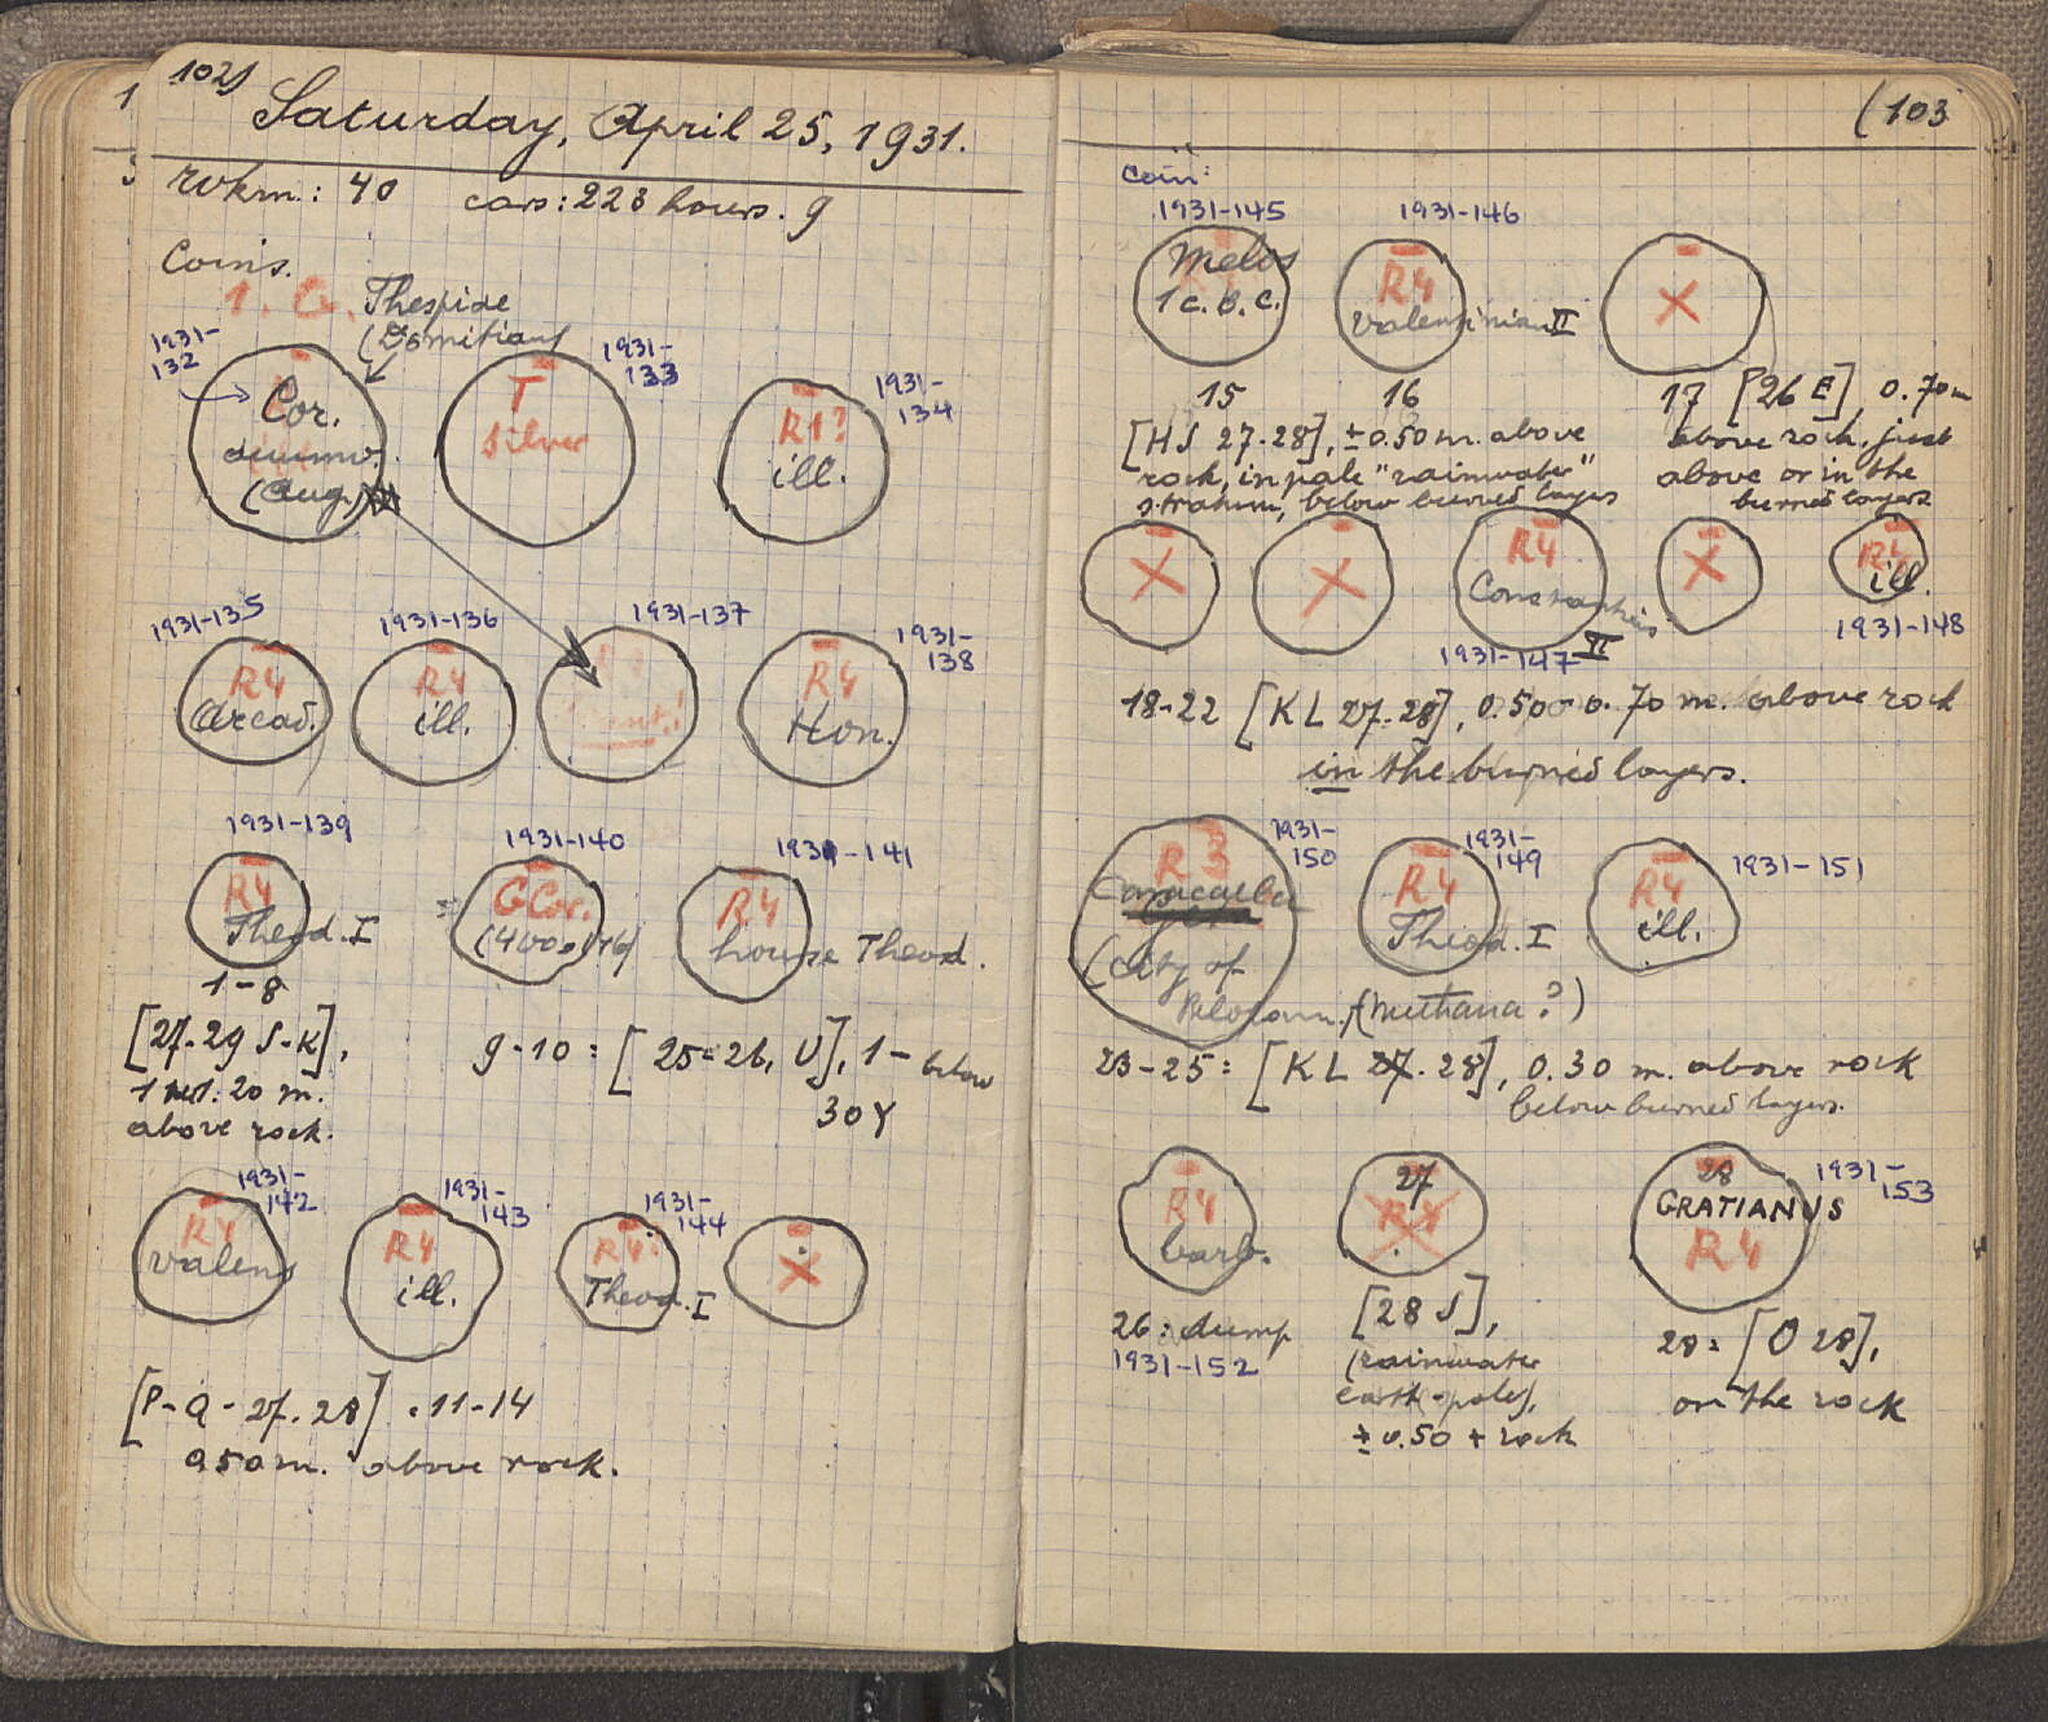 102)
Saturday, April 25, 1931.
wkm.: 40 cars: 223 hours. 9
Coins.
1. G. Thespiae
(Domitian)
1931-132
Cor.
duumv.
(Aug.)
1931-133
T
silver
1931-134
R1?
ill.
1931-135
R4
Arcad.
1931-136
R4
ill.
1931-137
1931-138
R4
Hon.
1931-139
R4
Theod. I
1931-140
G Cor.
(400-146)
1931-141
R4
house Theod.
1-8
[27-29 S-K],
1 m.
above rock.
9-10 = [25-26, U], 1- below
30 Y
1931-142
R4
Valens
1931-143
R4
ill.
1931-144
R4
Theod. I
X
[P-Q-27.28] . 11-14
0.50 m. above rock.
(103
coin:
1931-145
Melos
1 c. B.C.
1931-146
R4
Valentinian II
X
15
16
17 [26 E], 0.70 m
[HS 27-28], ± 0.50 m. above
rock, in pale "rainwater"
stratum, below burned layers
above rock, just
above or in the
burned layers
X
X
R4
Constantius
II
1931-147
X
R4
ill.
1931-148
18-22 [KL 27-28], 0.50-0.70 m. above rock
in the burned layers.
1931-150
R3
Caracalla
Geta
(City of
Peloponn. (Methana?)
1931-149
R4
Theod. I
1931-151
R4
ill.
23-25 = [KL 27.28], 0.30 m. above rock
below burned layers.
R4
barb.
27
R4
28
GRATIANUS
R4
1931-153
26: dump
1931-152
[28 S],
(rainwater
earth-pale),
± 0.50 + rock
28 = [O 28],
on the rock